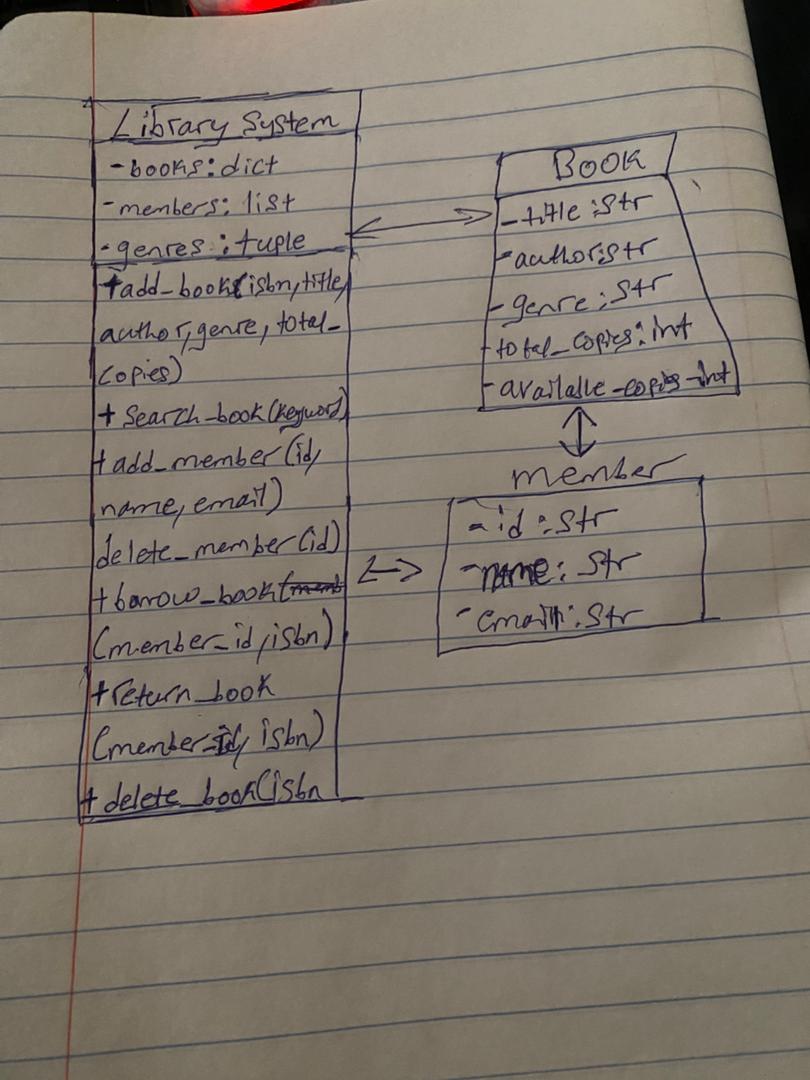 Library System
-books:dict
-members: list
-genres: tuple
+add_book(isbn,title,
author,genre,total_
copies)
+ search_book(keyword)
+add_member(id,
name,email)
delete_member(id)
+borrow_book(
(member_id,isbn)
+return_book
(member_id, isbn)
+ delete_book(isbn
BOOK
-title:str
-author:str
-genre:str
-total_copies:int
-available_copies-int
member
-id:str
-name: str
-email:str